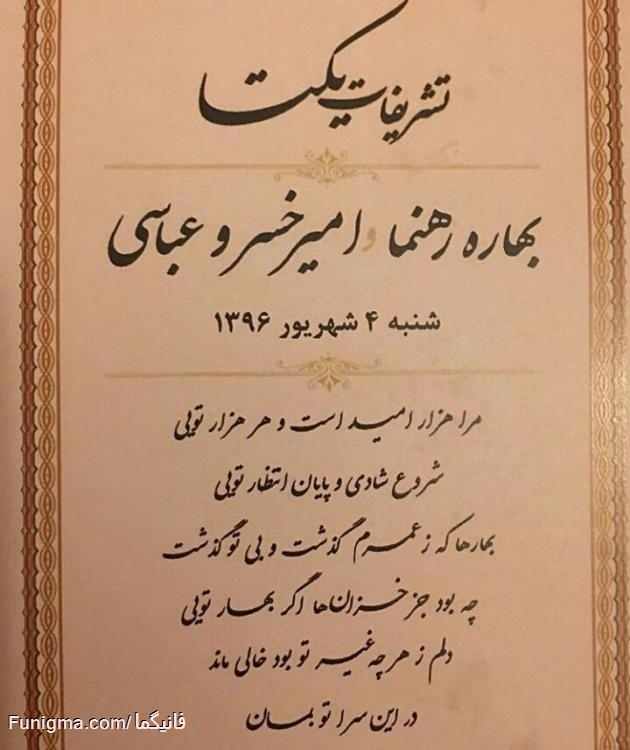 تشریفات یکتا
بهاره رهنما و امیرخسرو عباسی
شنبه ۴ شهریور ۱۳۹۶
مرا هزار امید است و هر هزار تویی
شروع شادی و پایان انتظار تویی
بهارها که ز عمرم گذشت و بی تو گذشت
چه بود جز خزان‌ها اگر بهار تویی
دلم ز هر چه غیر تو بود خالی ماند
در این سرا تو بمان
Funigma.com/ فانیگما